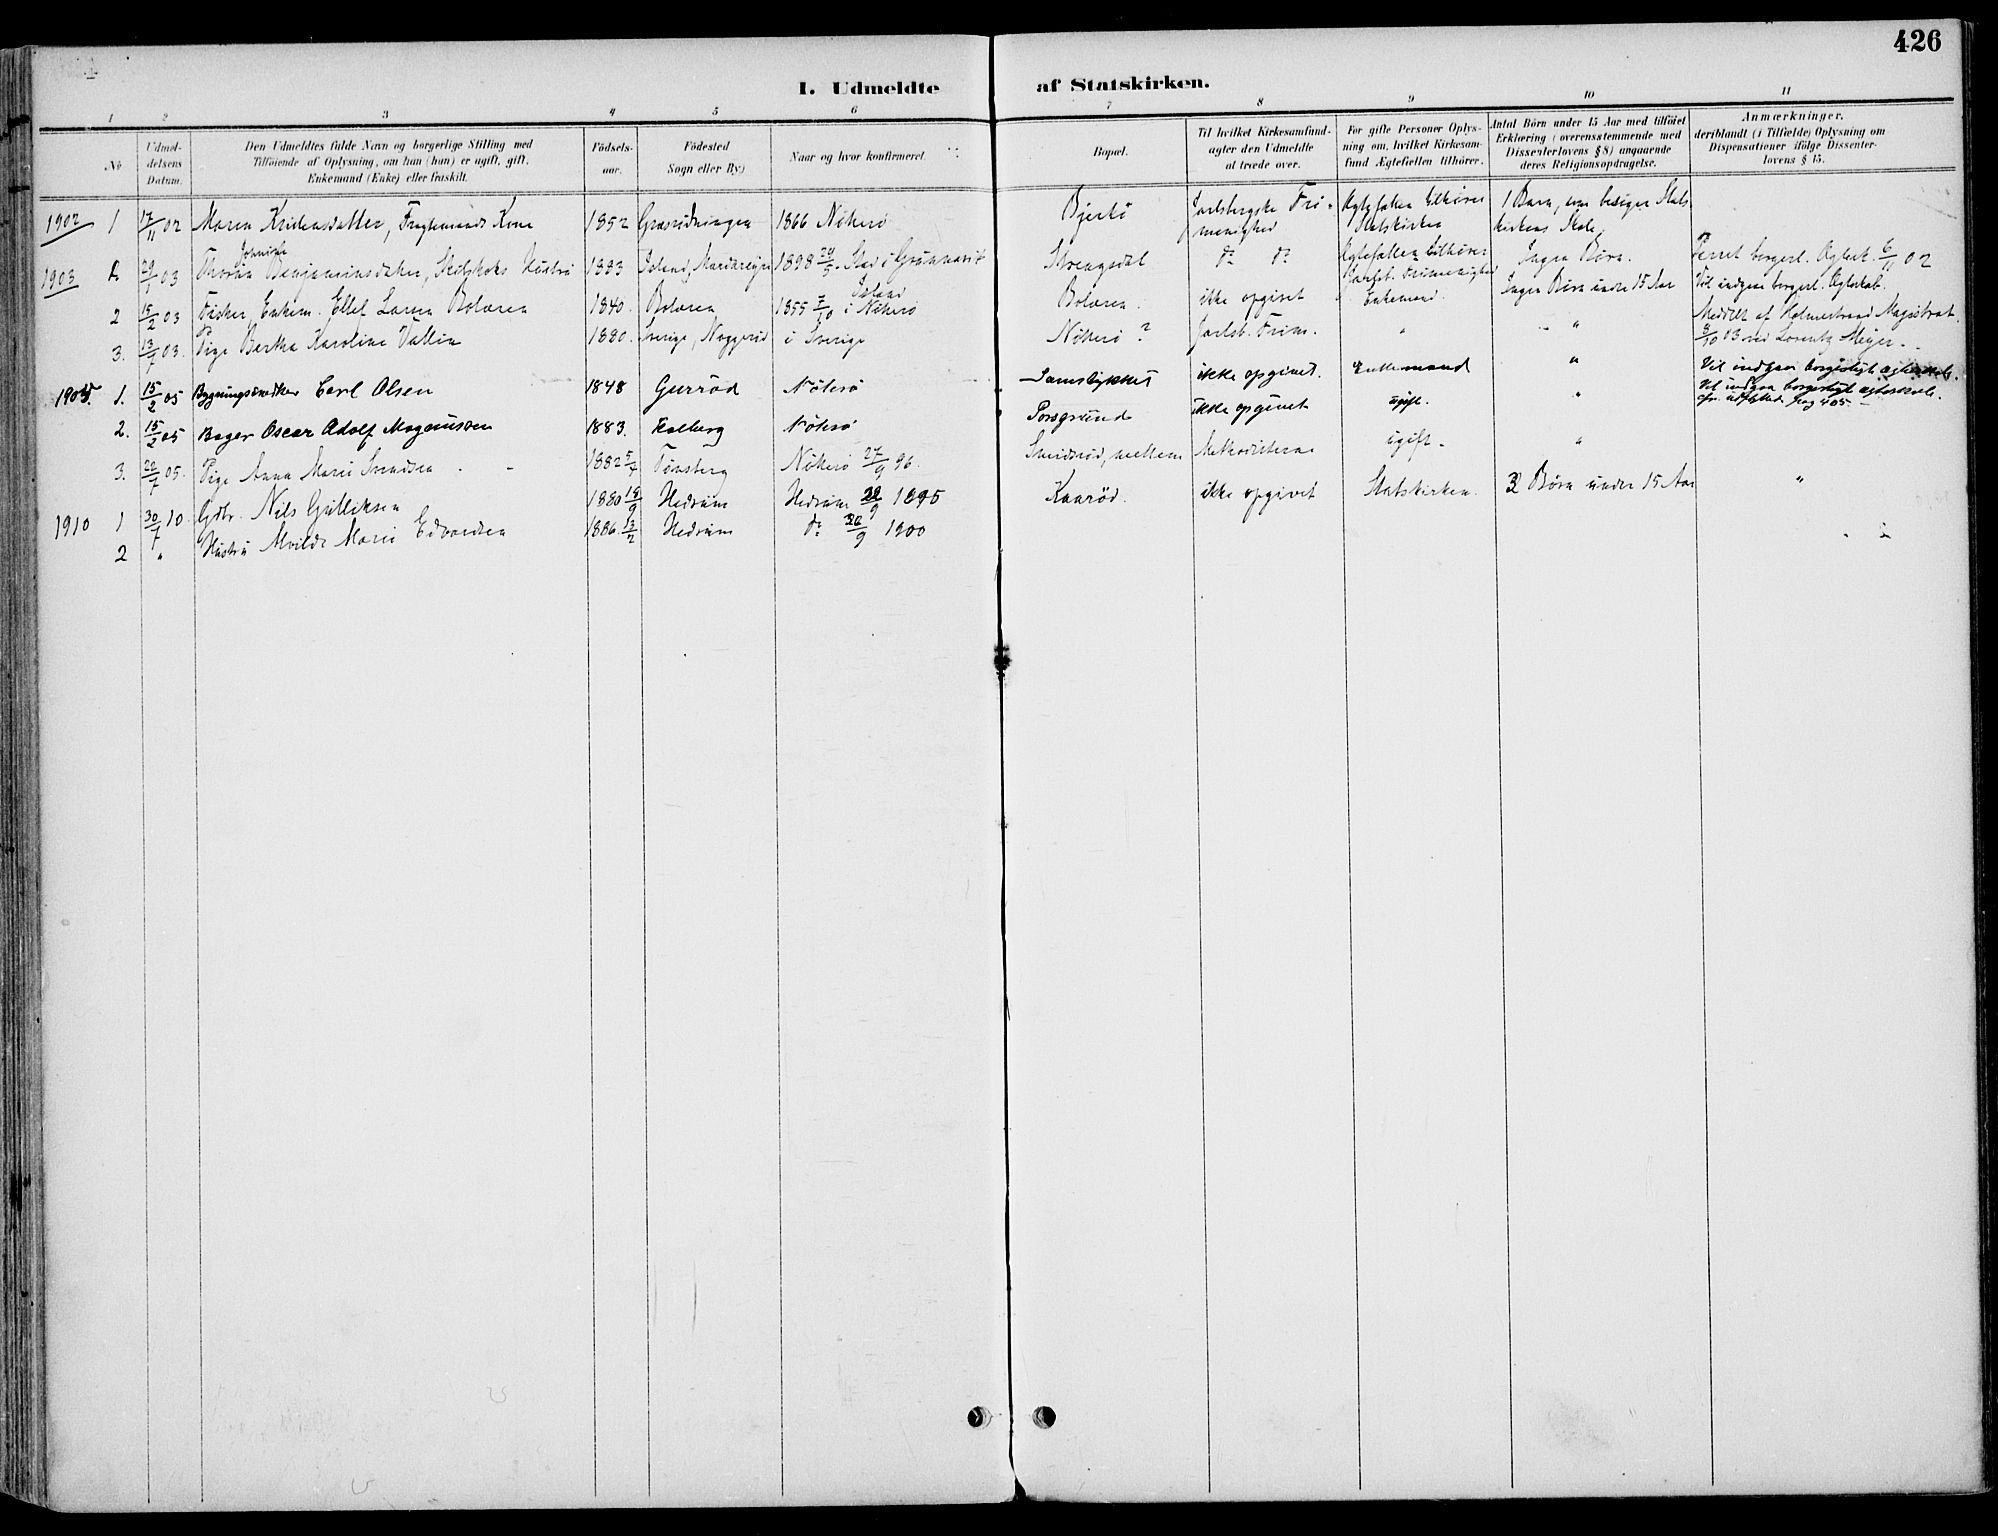 426
I. Udmeldte af Statskirken.
1 2 3 4 5 6 7 8 9 10 11
No
Udmeldelsens Datum.
Den Udmeldtes fulde Navn og borgerlige Stilling med
Tilføiende af Oplysning, om han (hun) er ugift, gift,
Enkemand (Enke) eller fraskilt.
Födselsaar.
Födested
Sogn eller By:)
Naar og hvor konfirmeret.
Bopæl.
Til hvilket Kirkesamfund-
agter den Udmeldte
at træde over.
For gifte Personer Oplys-
ning om, hvilket Kirkesam-
fund Ægtefællen tilhörer.
Antal Börn under 15 Aar med tilföiet
Erklæring (overensstemmende med
Dissenterlovens § 8) angaaende
deres Religionsopdragelse.
Anmærkninger,
deriblandt (i Tilfælde) Oplysning om
Dispensationer ifölge Dissenter-
lovens § 15.
1902 1 17/11 02 Maren Kristensdatter, Kone 1852 1866 Nöterö Bjertö Jarlsbergske Fri-
menighed Ægtefællen tilhörer
Statskirken 1 Barn, som besöger Stats
kirkens Skole.
1903 29/1 03 Thorun Benjaminsdatter, Hustru 1883 Island, 1898 24/5 Island d° d° Ægtefællen tilhörer
Jarlsb. Frimenighed Ingen Börn. borgerl. Ægtesk. 6/11 02
2 15/2 03 Fisker, Enkem. Ellef Larsen Bolæren 1840. Bolæren 1855 7/10 i Nöterö Bolæren. ikke opgivet Enkemand. Ingen Börn under 15 Aar Vil indgaa borgerl. Ægteskab.
3. 13/7 03. Pige Bertha Karoline Vallin 1880. Sverige, i Sverige Nöterö? Jarlsb. Frim. " " Meddelt af Holmestrand Magistrat
3/10 03 ved Lorentz Meyer.
1905. 1. 15/2 05 Bygningssnedker Carl Olsen 1848 Gurröd Nöterö ikke opgivet. Enkemand " Vil indgaa borgerligt ægteskab.
2. 15/2 05 Bager Oscar Adolf Magnussen 1883. Kalberg Nöterö Porsgrund ikke opgivet ugift. " Vil indgaa borgerligt ægteskab.
cfr. udflyttede pag 405
3. 22/7 05. Pige Anna Marie Svendsen 1882 5/7 Tönsberg Nöterö 27/9 96. Smidsröd, mellem Methodisterne ugift "
1910 1 30/7 10 Gdbr. Nils Gulliksen 1880 18/9 Hedrum Hedrum 1895 Kaaröd. ikke opgivet Statskirken. Börn under 15 Aar "
2 " Hustru Alvilde Marie Edvardsen 1886. 13/2 Hedrum d° 1900